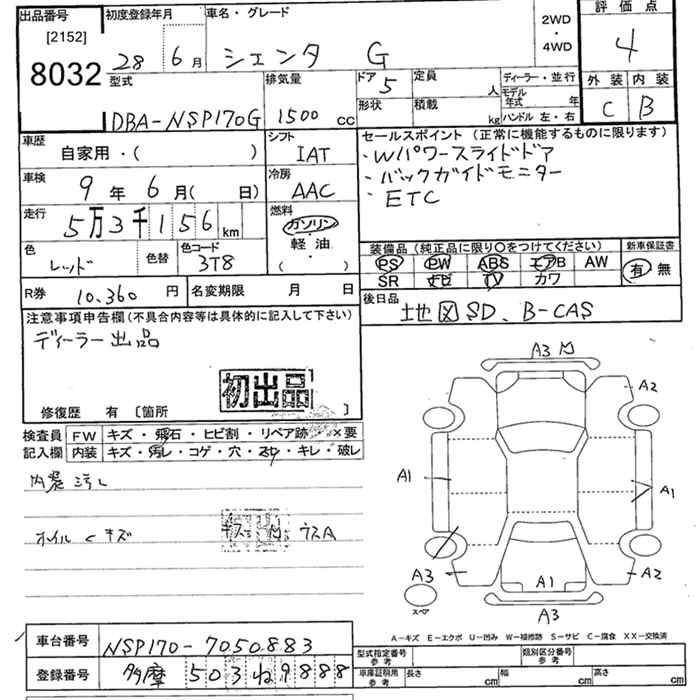 出品番号 初度登録年月 車名・グレード 2WD・4WD 評価点
[2152]
8032 28 6月 シエンタ G 4
型式 排気量 ドア 5 定員 人 ディーラー・並行 外装 内装
DBA-NSP170G 1500 cc 形状 積載 kg モデル年式 年 C B
ハンドル 左・右
車歴 シフト セールスポイント(正常に機能するものに限ります)
自家用・( ) IAT ・Wパワースライドドア
車検 冷房 ・バックガイドモニター
9年 6月( 日) AAC ・ETC
走行 燃料
5万3千156km ガソリン・軽油・( )
色 色替 色コード 装備品(純正品に限り○をつけてください) 新車保証書
レッド 3T8 PS PW ABS エアB AW 有 無
SR ナビ TV カワ
R券 10,360円 名変期限 月 日 後日品
地図SD、B-CAS
注意事項申告欄(不具合内容等は具体的に記入して下さい)
ディーラー出品
初出品
修復歴 有 [箇所 ]
検査員 FW キズ・飛石・ヒビ割・リペア跡・×要
記入欄 内装 キズ・汚レ・コゲ・穴・スレ・キレ・破レ
内装汚レ
ホイルcキズ キズ 凹 ウスA
A3
A2
A1
A1
A3
A2
A1
A3
スペア
A-キズ E-エクボ U-凹み W-補修跡 S-サビ C-腐食 XX-交換済
車台番号 NSP170-7050883
登録番号 多摩 503 ね 9888
型式指定番号 参考 類別区分番号 参考
車庫証明用 参考 長さ cm 幅 cm 高さ cm